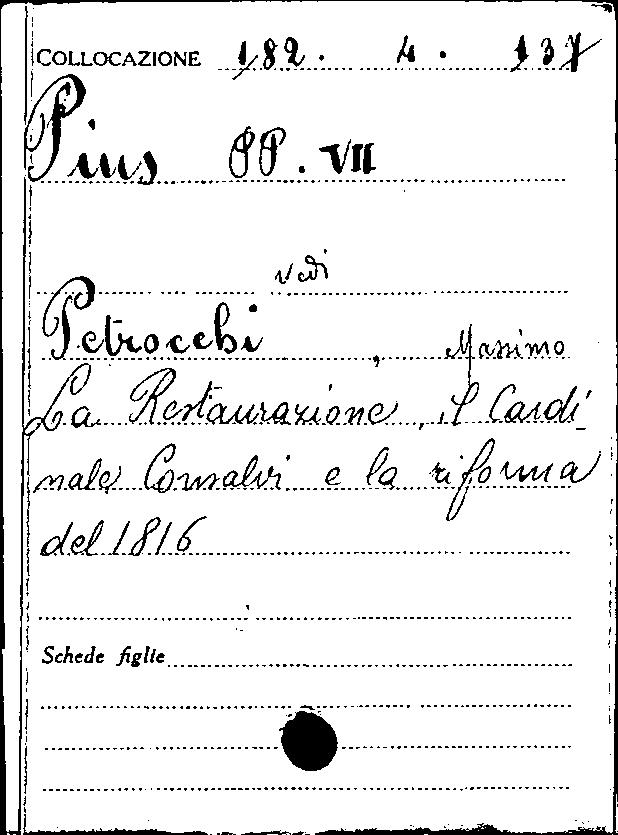 COLLOCAZIONE 182. 4. 137
Pius PP. VII
vedi
Petrocchi, Massimo
La Restaurazione, il Cardi-
nale Consalvi e la riforma
del 1816
Schede figlie